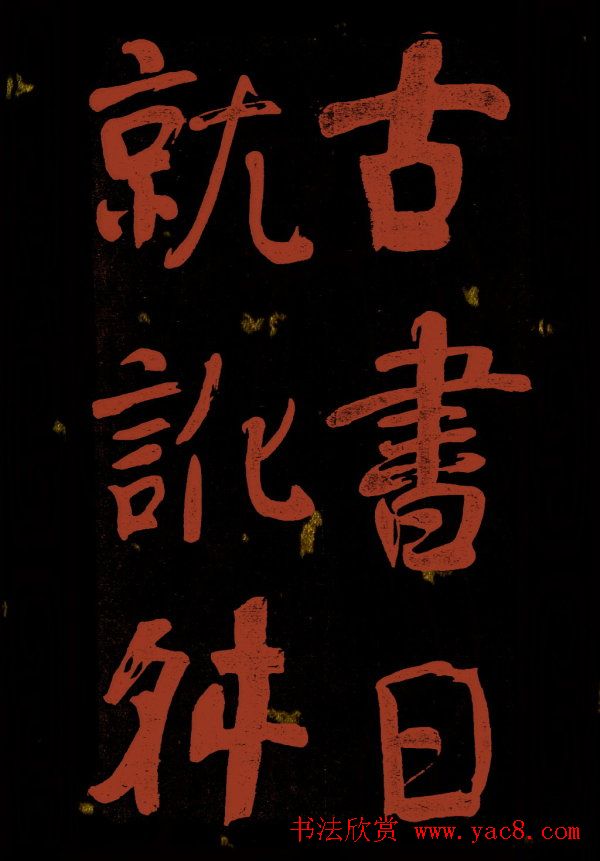 古書日
就訛舛
书法欣赏 www.yac8.com